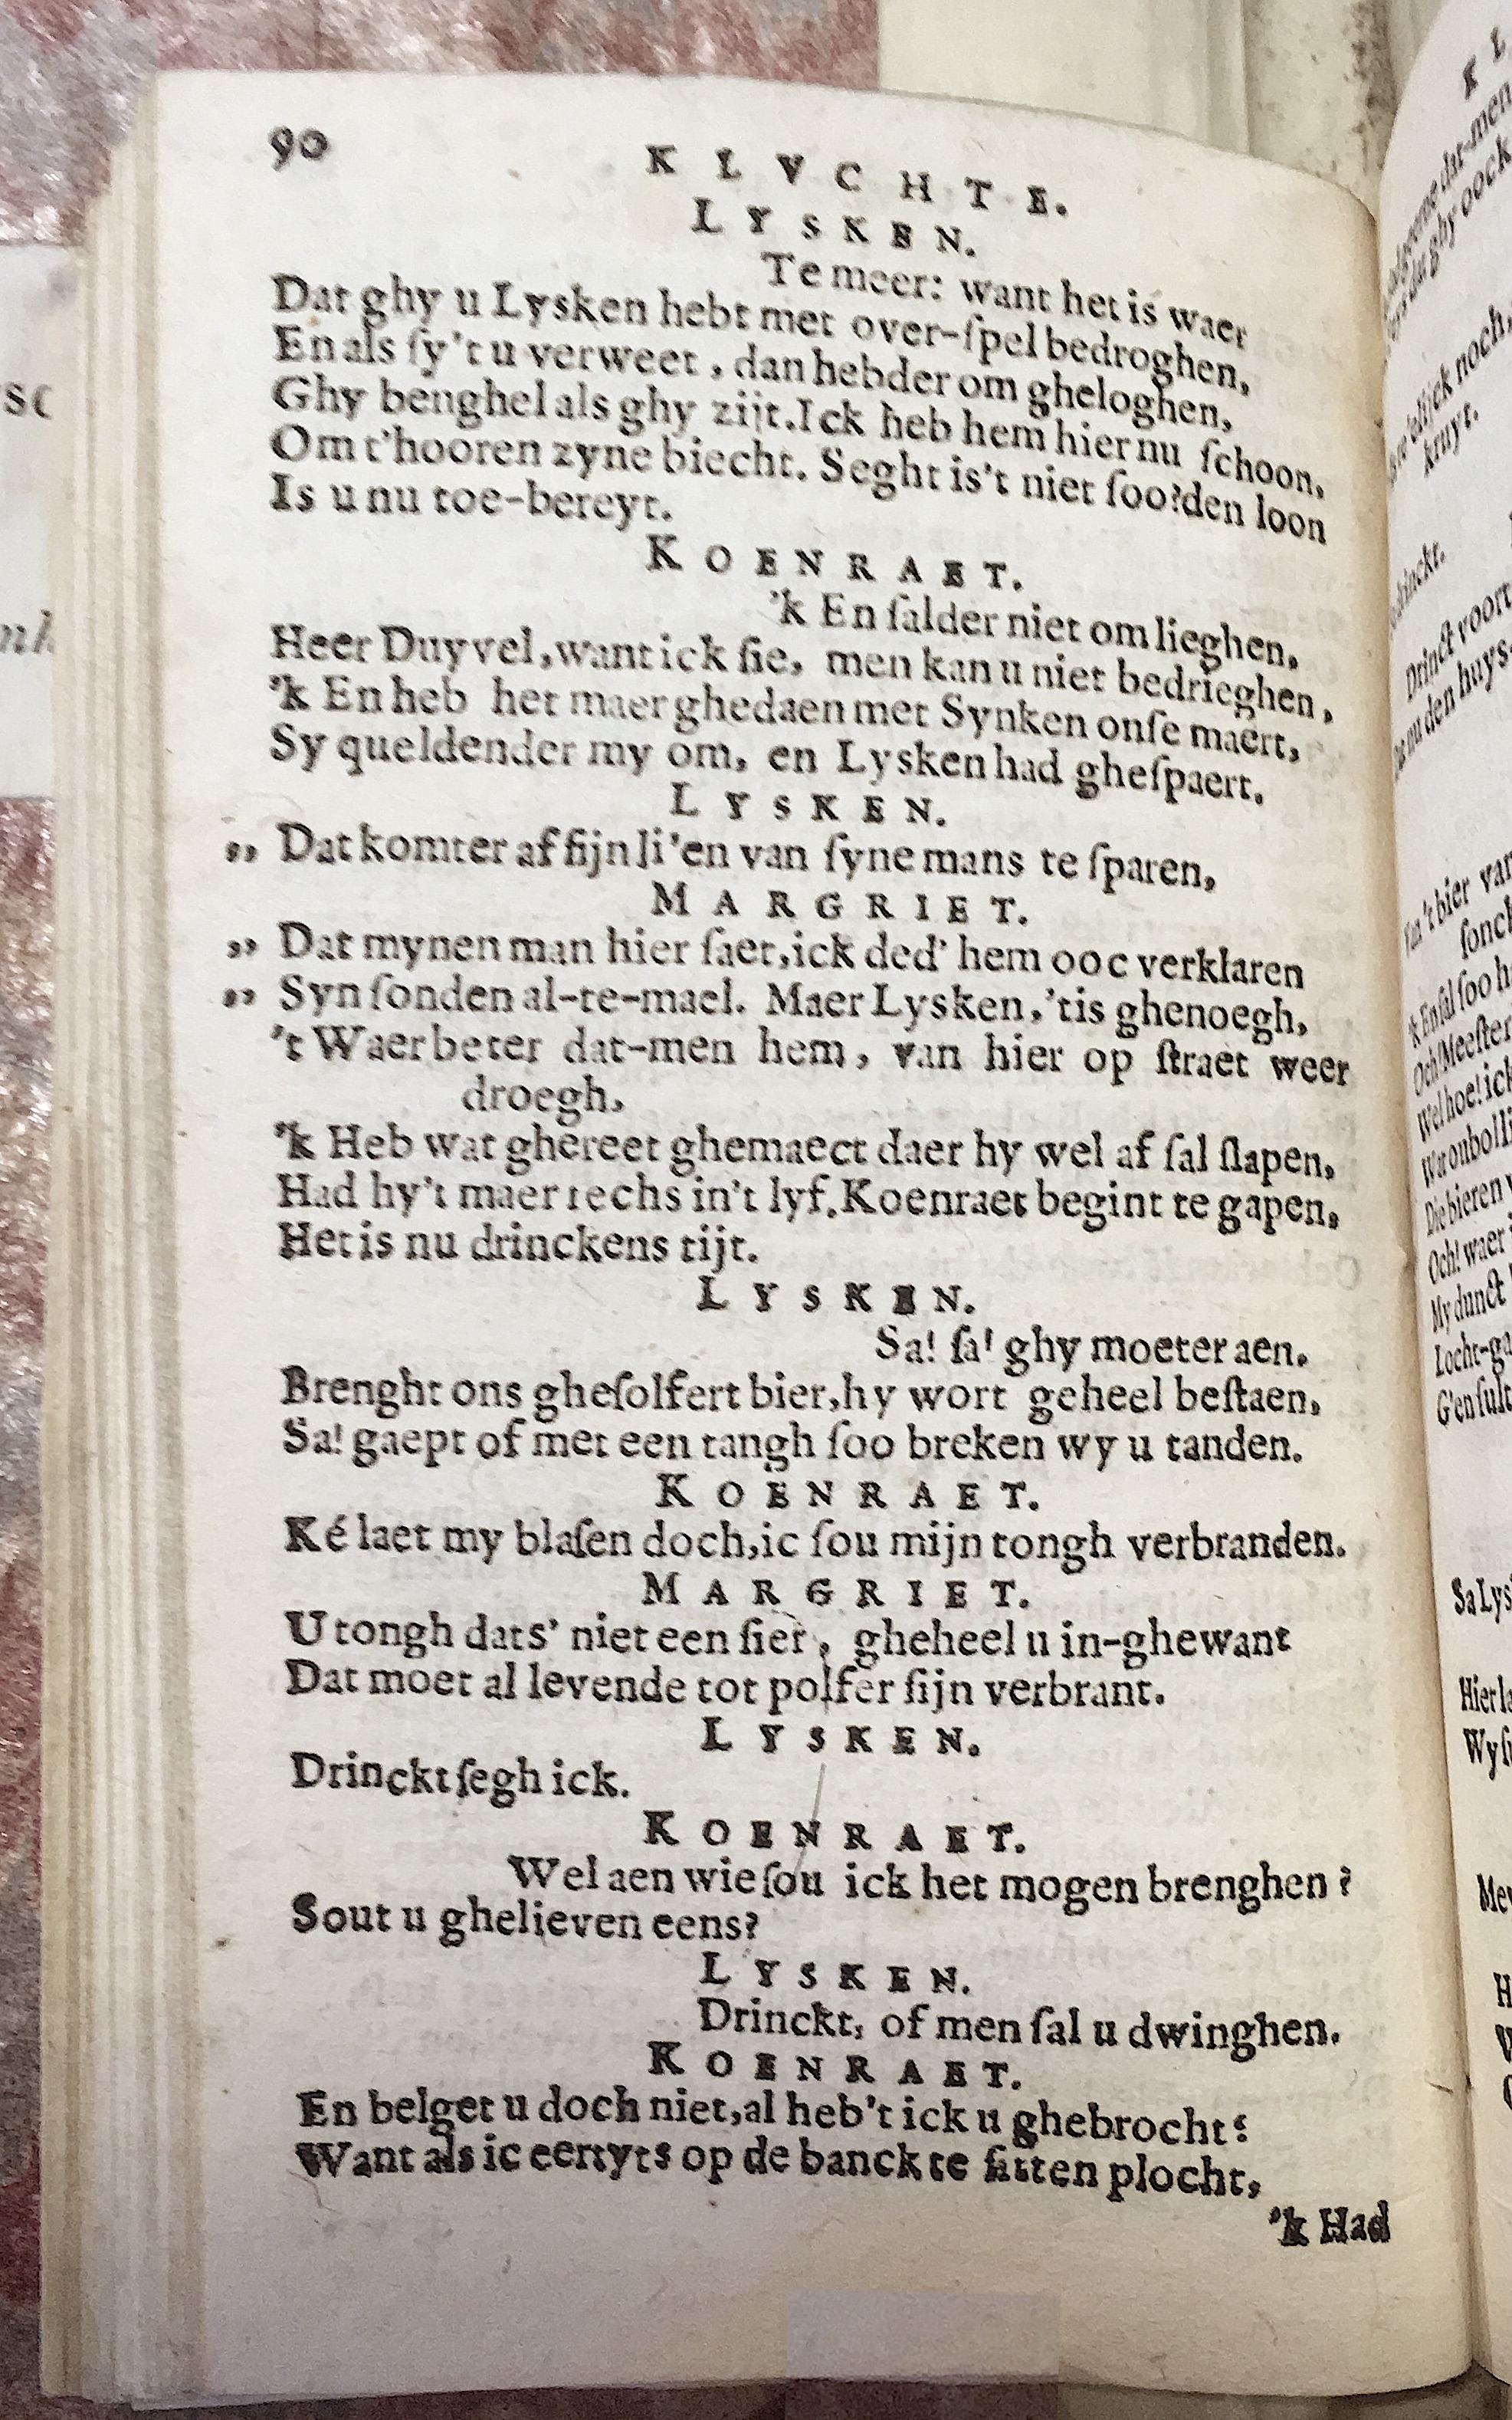 90
KLVCHTE.
LYSKEN.
Te meer: want het is waer
Dat ghy u Lysken hebt met over-ſpel bedroghen,
En als ſy't u verweet, dan hebder om gheloghen,
Ghy benghel als ghy zijt. Ick heb hem hier nu ſchoon,
Om t'hooren zyne biecht. Seght is't niet ſoo? den loon
Is u nu toe-bereyt.
KOENRAET.
'k En ſalder niet om lieghen,
Heer Duyvel, want ick ſie, men kan u niet bedrieghen,
'k En heb het maer ghedaen met Synken onſe maert,
Sy queldender my om, en Lysken had gheſpaert.
LYSKEN.
„ Dat komter af ſijn li'en van ſyne mans te ſparen,
MARGRIET.
„ Dat mynen man hier ſaet, ick ded' hem ooc verklaren
„ Syn ſonden al-te-mael. Maer Lysken, 'tis ghenoegh,
't Waer beter dat-men hem, van hier op ſtraet weer
droegh,
'k Heb wat ghereet ghemaect daer hy wel af ſal ſlapen,
Had hy't maer rechs in't lyf. Koenraet begint te gapen,
Het is nu drinckens tijt.
LYSKEN.
Sa! ſa! ghy moeter aen.
Brenght ons gheſolfert bier, hy wort geheel beſtaen,
Sa! gaept of met een tangh ſoo breken wy u tanden.
KOENRAET.
Ké laet my blaſen doch, ic ſou mijn tongh verbranden.
MARGRIET.
U tongh dats' niet een ſier, gheheel u in-ghewant
Dat moet al levende tot polfer ſijn verbrant.
LYSKEN.
Drinckt ſegh ick.
KOENRAET.
Wel aen wie ſou ick het mogen brenghen?
Sout u ghelieven eens?
LYSKEN.
Drinckt, of men ſal u dwinghen.
KOENRAET.
En belget u doch niet, al heb't ick u ghebrocht:
Want als ic eertyts op de banck te ſitten plocht,
'k Had